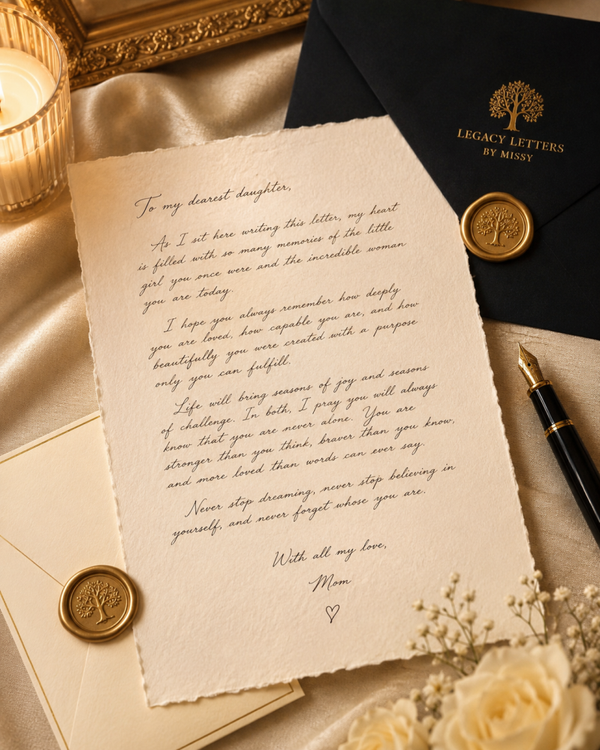 LEGACY LETTERS
BY MISSY
To my dearest daughter,
As I sit here writing this letter, my heart
is filled with so many memories of the little
girl you once were and the incredible woman
you are today.
I hope you always remember how deeply
you are loved, how capable you are, and how
beautifully you were created with a purpose
only you can fulfill.
Life will bring seasons of joy and seasons
of challenge. In both, I pray you will always
know that you are never alone. You are
stronger than you think, braver than you know,
and more loved than words can ever say.
Never stop dreaming, never stop believing in
yourself, and never forget whose you are.
With all my love,
Mom